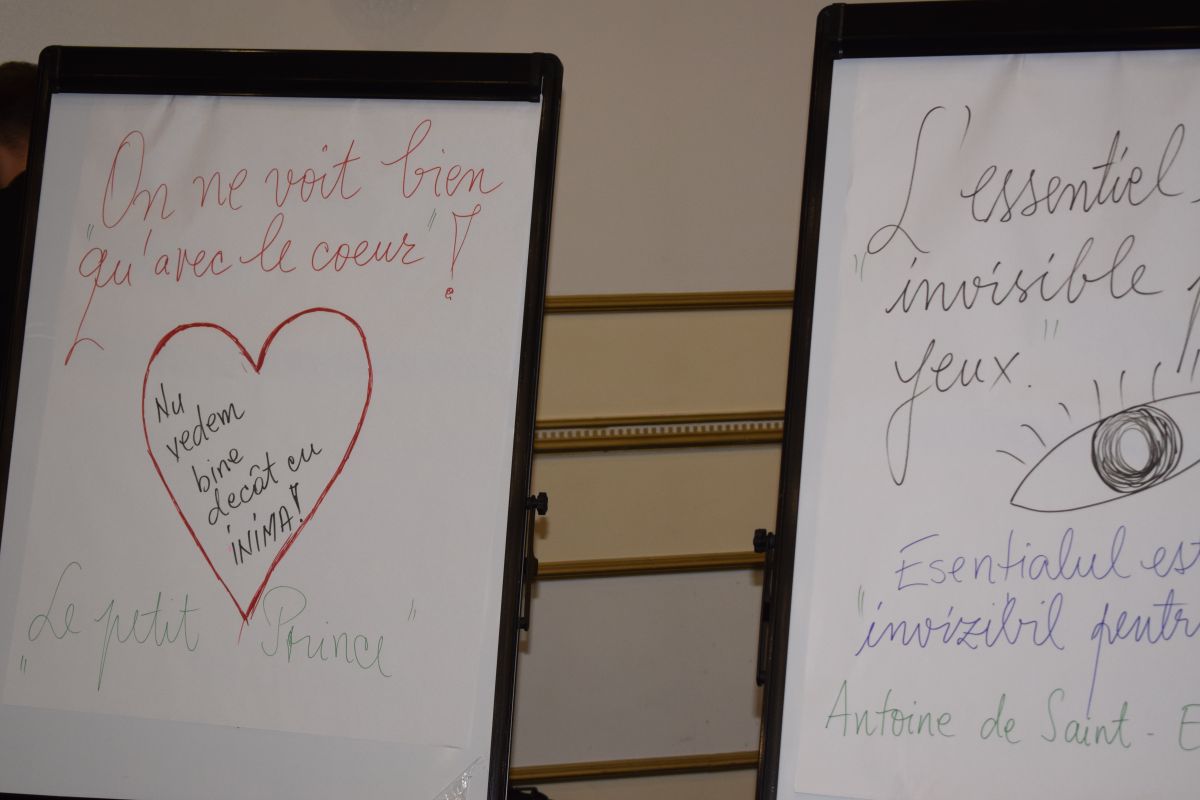 On ne voit bien
"qu'avec le coeur"!
Nu
vedem
bine
decât cu
INIMA!
"Le petit Prince"
L'essentiel
"invisible
yeux."
Esentialul est
"invizibil pentr
Antoine de Saint-E